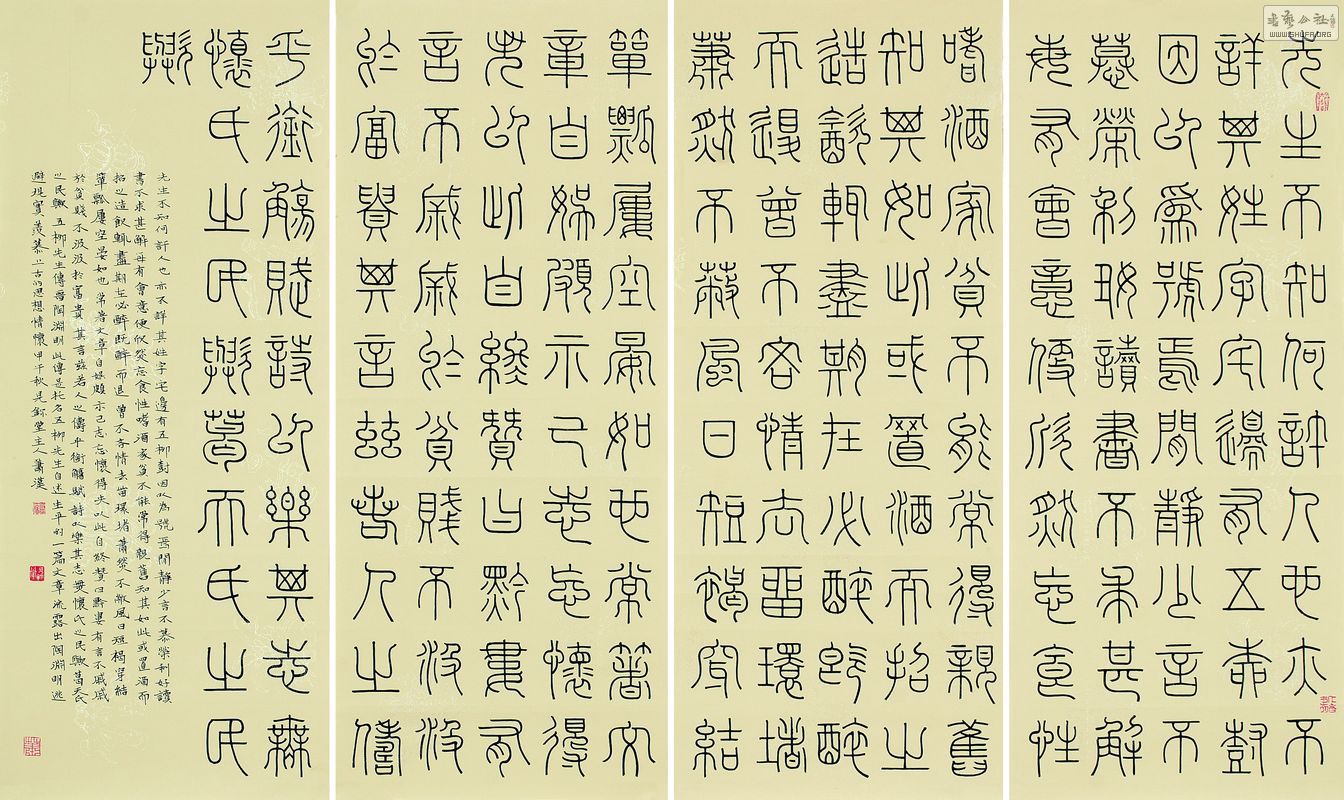 先生不知何許人也亦不
詳其姓字宅邊有五柳樹
因以爲號焉閒靜少言不
慕榮利好讀書不求甚解
每有會意便欣然忘食性
嗜酒家貧不能常得親舊
知其如此或置酒而招之
造飲輒盡期在必醉既醉
而退曾不吝情去留環堵
蕭然不蔽風日短褐穿結
簞瓢屢空晏如也常著文
章自娛頗示己志忘懷得
失以此自終贊曰黔婁有
言不戚戚於貧賤不汲汲
於富貴其言茲若人之儔
乎銜觴賦詩以樂其志無
懷氏之民歟葛天氏之民
歟
先生不知何許人也亦不詳其姓字宅邊有五柳樹因以為號焉閒靜少言不慕榮利好讀
書不求甚解每有會意便欣然忘食性嗜酒家貧不能常得親舊知其如此或置酒而
招之造飲輒盡期在必醉既醉而退曾不吝情去留環堵蕭然不蔽風日短褐穿結
簞瓢屢空晏如也常著文章自娛頗示己志忘懷得失以此自終贊曰黔婁有言不戚戚
於貧賤不汲汲於富貴其言茲若人之儔乎銜觴賦詩以樂其志無懷氏之民歟葛天氏
之民歟五柳先生傳晉陶淵明此傳是托名五柳先生自述生平的一篇文章流露出陶淵明逃
避現實羨慕上古的思想情懷甲午秋堂主人蕭漢
书艺公社
WWW.SHUFA.ORG